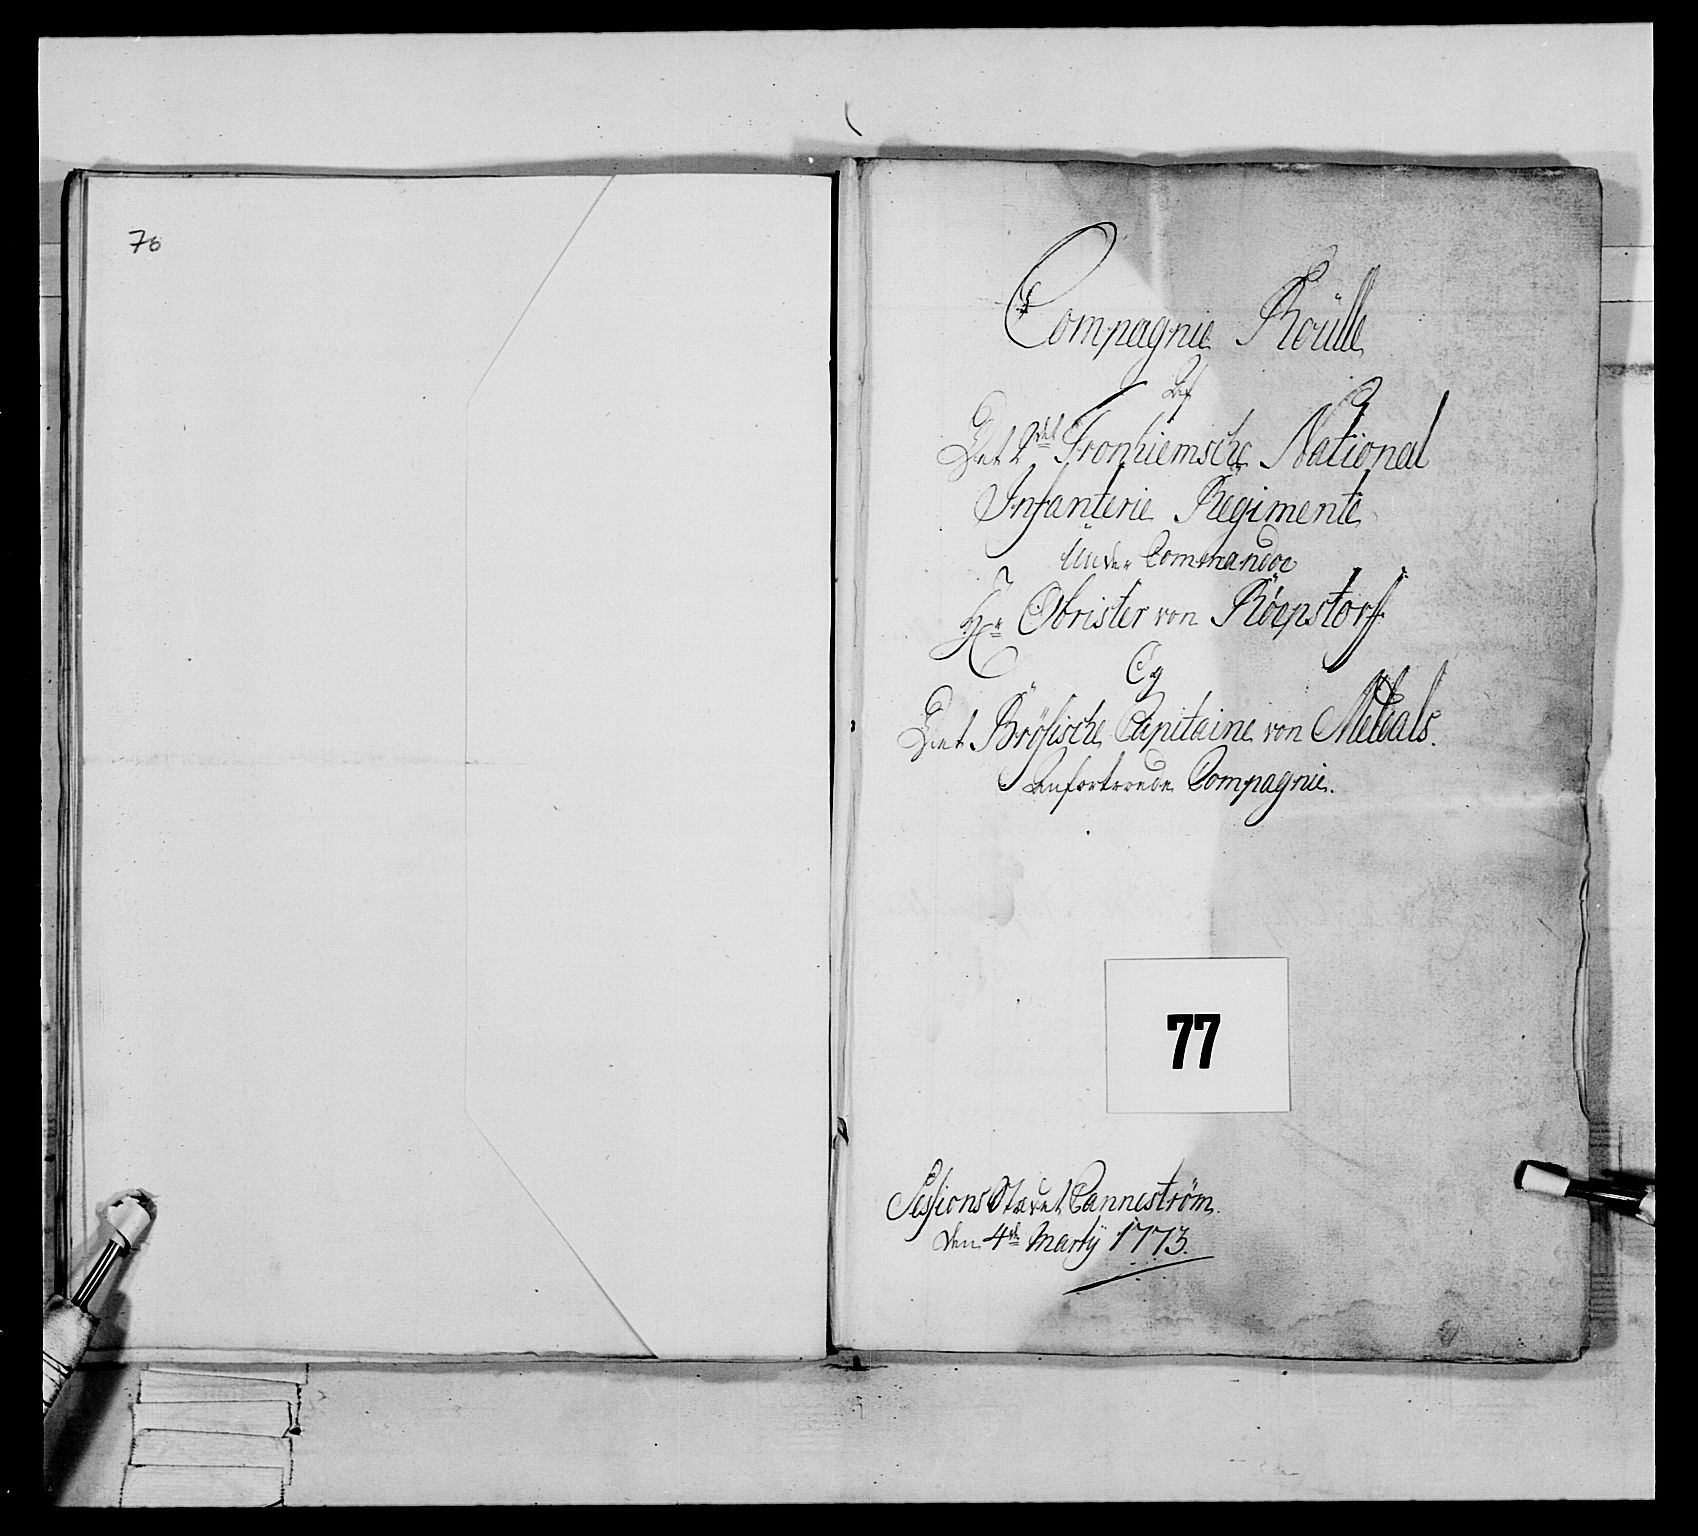 76
Compagnie Roülle
Af
Det 2det Tronhiemsche National
Infanterie Regimente
Under Commandoe
Hr Obrister von Röepstorff
Og
Det Brösische Capitaine von Meleals.
anfortroede Compagnie.
77
Sessions Stævet Canneström
den 4de Marty 1773.